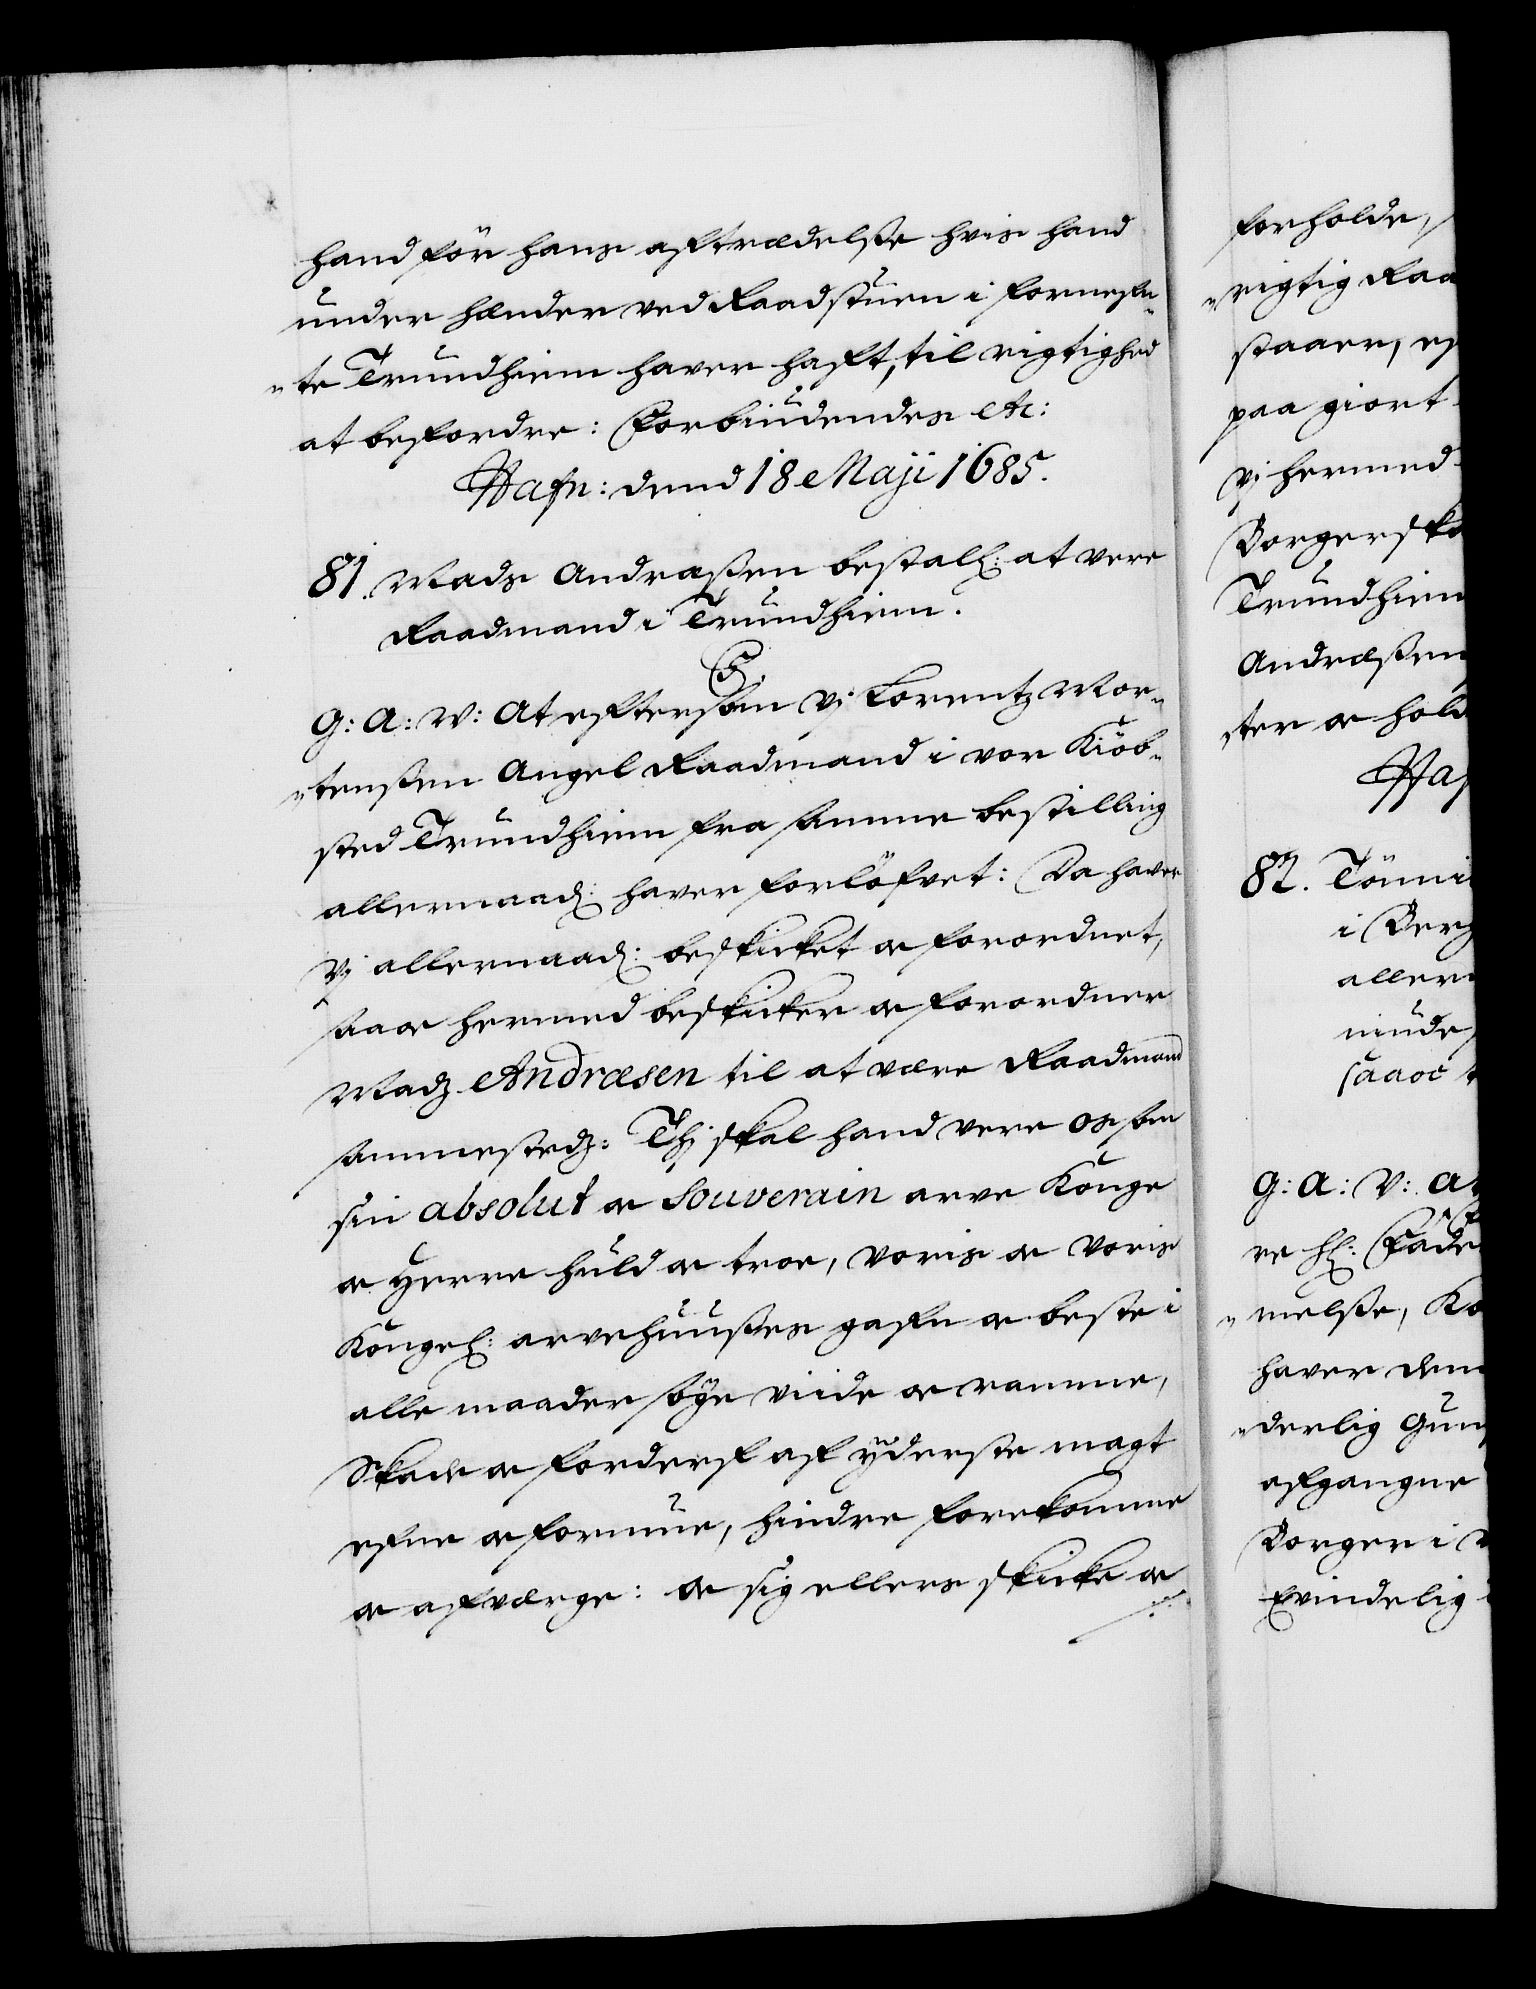 hand før hans aftrædelsse hvis hand
under hænder ved Raadstuen i fornefn„
„te Trundhiem haver hafft, til rigtighed
at befordre: Forbiudendes etc:
Hafn: dend 18 Maji 1685.
81. Mads Andræssen bestall: at vere
Raadmand i Trundhiem.
C5.
G: A: V: At eftersom Vj Lorentz Mor„
„tenssen Angel Raadmand i vor Kiöb„
sted Trundhiem fra samme bestilling
allernaad: haver forlöfvet: Da haver
Vj allernaad: beskicket oc forordnet,
saa oc hermed beskicker oc forordner
Madz Andræsen til at være Raadmand
sammestedz: Thj skal hand vere os som
sin absolut oc Souverain arve Konge
oc Herre huld oc troe, voris oc voris
Kongel: arvehuusses gafn oc beste i
alle maader söge viide oc ramme,
Skade oc forderf af yderste magt
efne oc formue, hindre forekomme
oc afværge: oc sig ellers skicke oc
forholde,
„rigtig Raa
staaer, ef
paa giort
Vj hermed
Borgerska
Trundhiem
Andræssen
ster oc hold
Haf
82. Tönni
i Berg
allern
niude
saaoc
G: A: V: At
re hl: Fade
„melsse, Ko
haver den
„derlig Gun
afgangne
Borger i
Evindelig